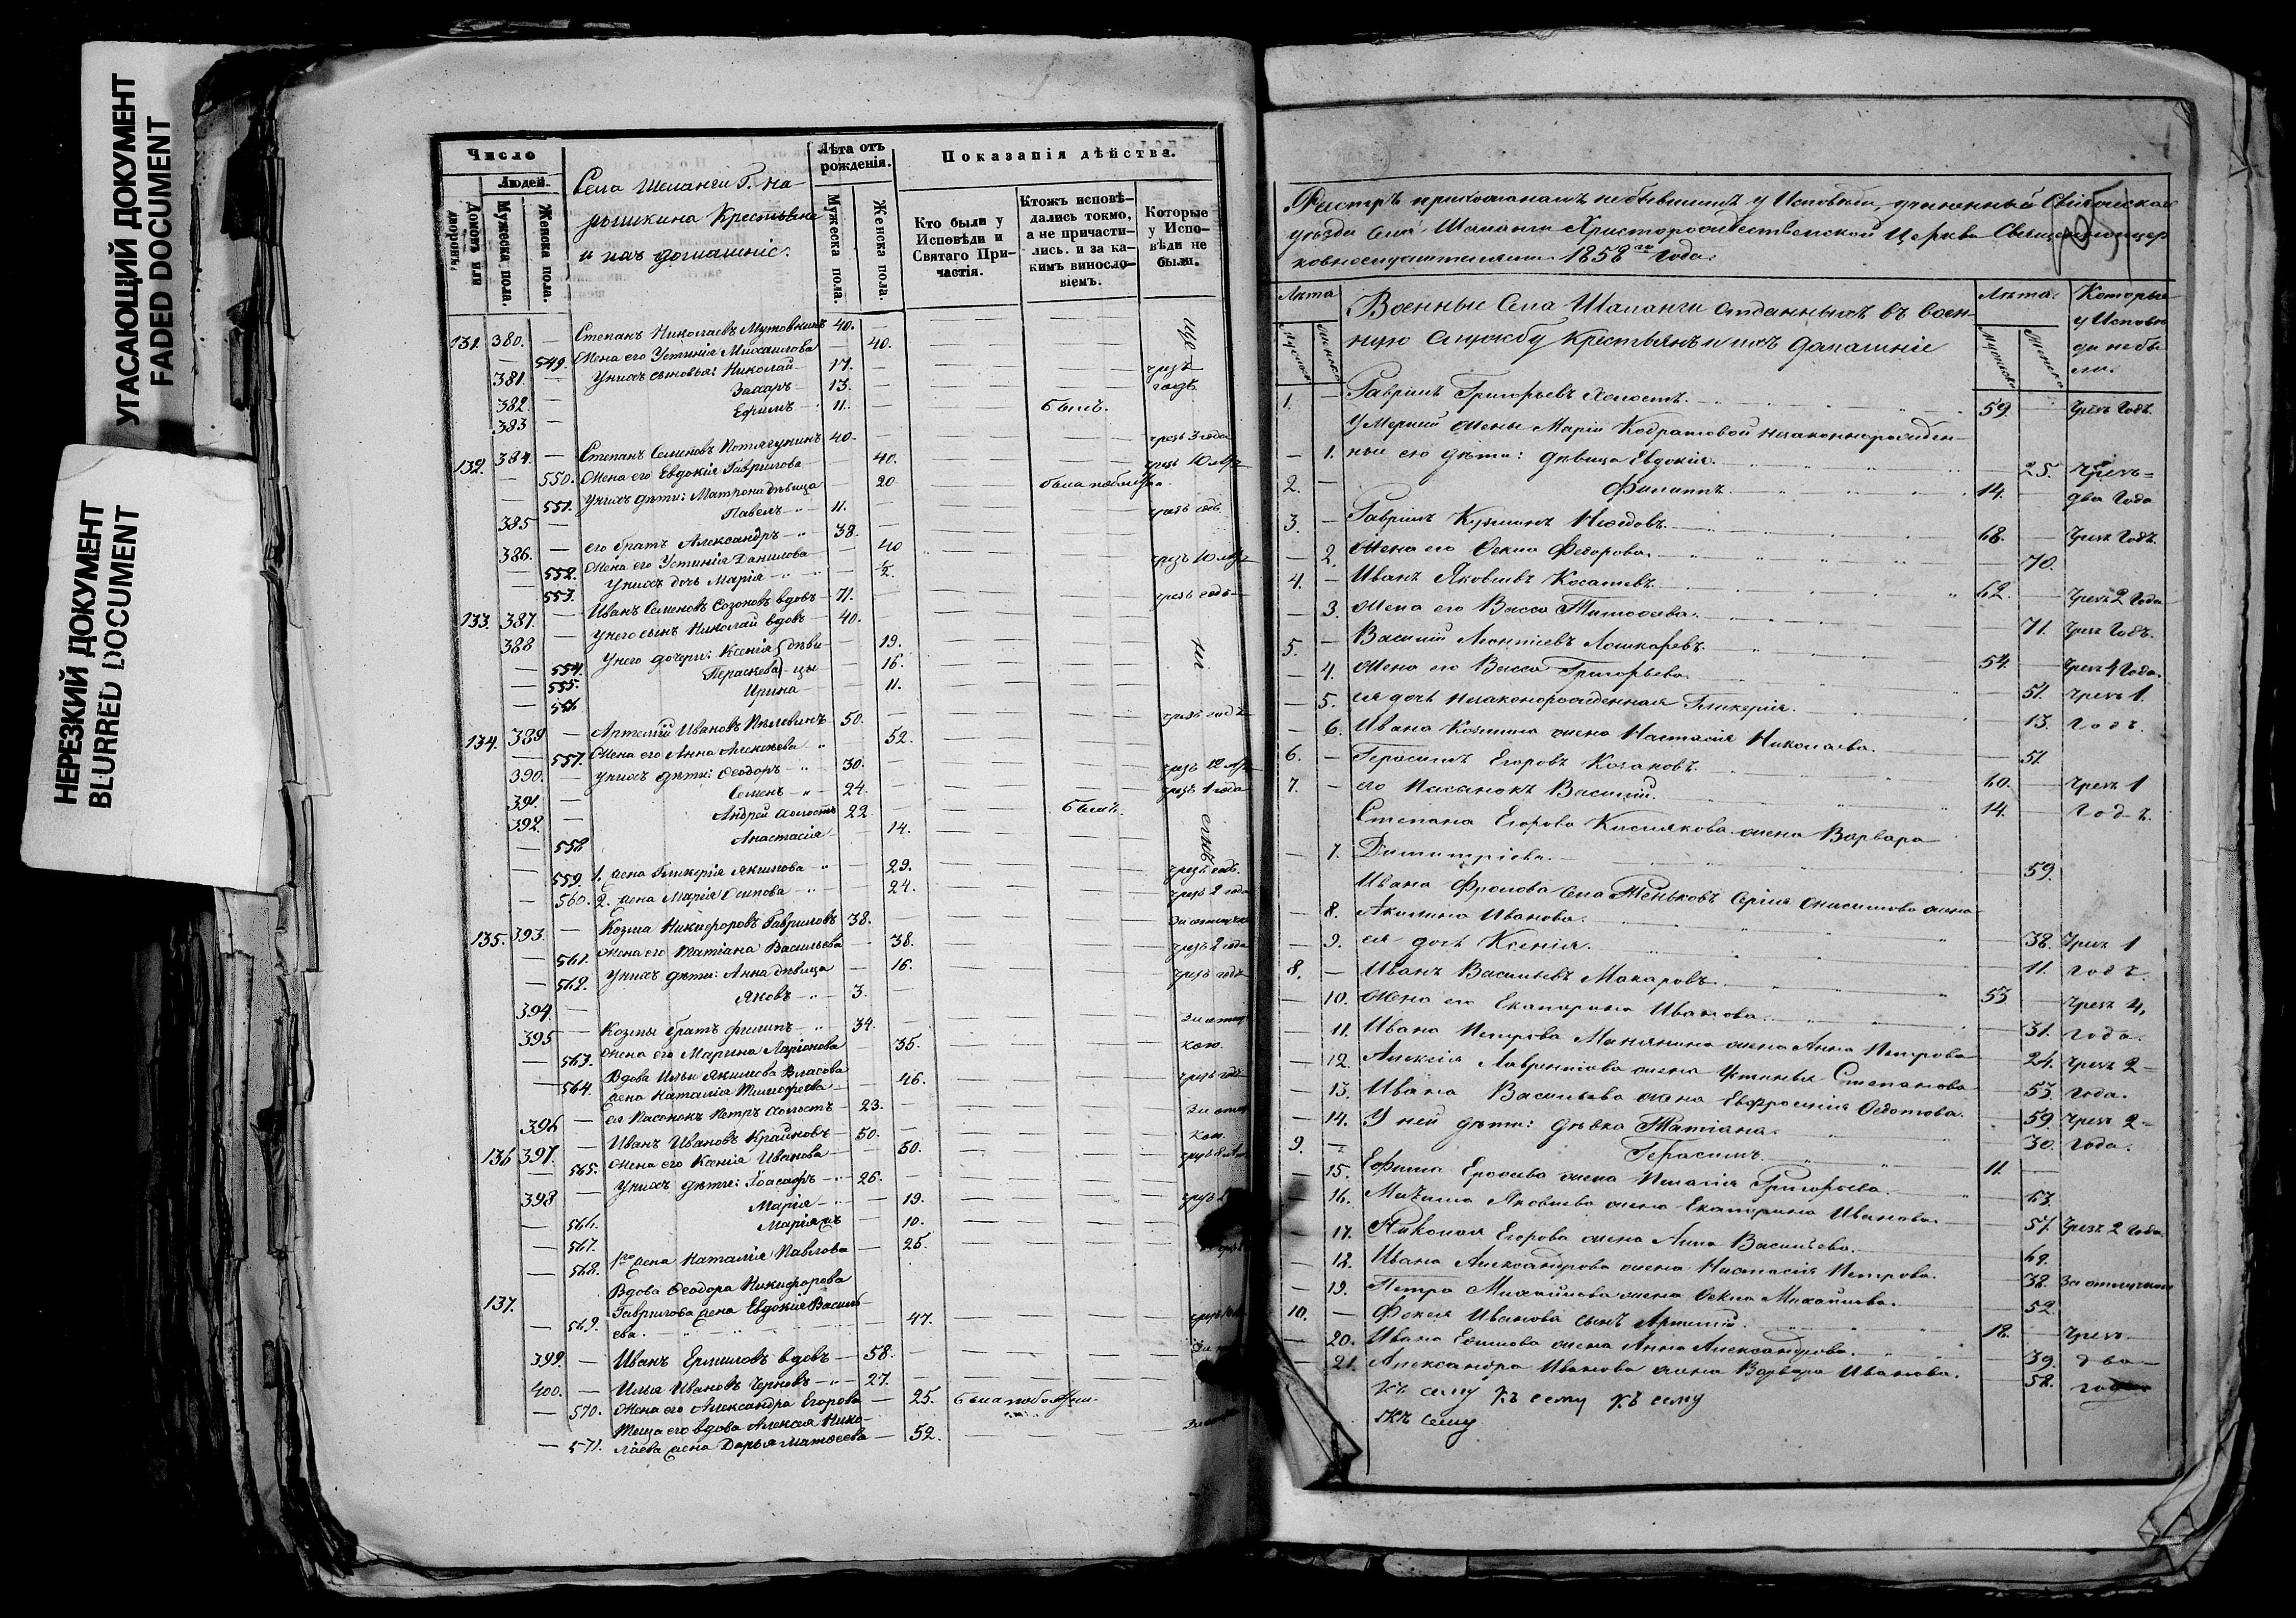 УГАСАЮЩИЙ ДОКУМЕНТ
FADED DOCUMENT
НЕРЕЗКИЙ ДОКУМЕНТ
BLURRED DOCUMENT
Число
Людей.
Домовъ или дворовъ.
Мужеска пола.
Женска пола.
Села Шеланги Г. На-
рышкина Крестьяне
и ихъ домашніе.
Лѣта отъ рожденія.
Мужеска пола.
Женска пола.
Показанія дѣйства.
Кто были у Исповѣди и Святаго При-частія.
Ктожъ исповѣ-дались токмо, а не причасти-лись. и за ка-кимъ винослo-віемъ.
Которые у Испо-вѣди не были.
131. 380. — Степанъ Николаевъ 40. —
— 549. Жена его Устинія Михаилова — 40.
381. — У нихъ сыновья: Николай 17. — чрезъ
382. — Захаръ 13. — годъ
383 — Ефимъ 11. — былъ.
132. 384. — Степанъ Семеновъ 40. — чрезъ 3 года
— 550. Жена его Евдокія Гаврилова — 40. чрезъ 10 лѣт
— 551. У нихъ дѣти: Матрона дѣвица — 20
385 — Павелъ 11. — чрезъ годъ.
386. — его братъ Александръ 38. —
— 552. Жена его Устинія Данилова — 40 чрезъ 10 лѣт
— 553. У нихъ дочь Марія — ½.
133. 387. — Иванъ Семеновъ Созоновъ вдовъ 71. чрезъ годъ
388 — У него сынъ Николай вдовъ 40.
— 554. У него дочери: Ксенія дѣви- — 19.
— 555. Параскева цы — 16.
— 556 Ирина — 11.
134. 389 — Артемій Ивановъ 50. — чрезъ годъ
— 557. Жена его Анна Алексѣева — 52.
390. — У нихъ дѣти: Ѳеодоръ 30. — чрезъ 12 лѣт
391. — Семенъ 24. — чрезъ 1 года
392. — Андрей холостъ 22 — былъ.
— 558 Анастасія — 14.
— 559. 1. жена Гликерія Якимова — 29. чрезъ годъ.
— 560. 2. жена Марія Осипова — 24. чрезъ 2 года
135. 393. — Козма Никифоровъ Гавриловъ 38. —
— 561. Жена его Татіана Васильева — 38. чрезъ 2 года
— 562. У нихъ дѣти: Анна дѣвица — 16. чрезъ годъ
394. — Яковъ 3. —
395 — Козмы братъ Филипъ 34.
— 563. Жена его Марина Ларіонова — 35.
Вдова Ильи Якимова Власова
— 564. жена Наталія Тимофеева — 46. чрезъ годъ
396 — ея Пасынокъ Петръ холостъ 23.
136 397. — Иванъ Ивановъ Крайновъ 50.
— 565. Жена его Ксенія Иванова — 50.
398 — У нихъ дѣти: Іоасафъ 26.
— 566. Марія — 19.
— 567. Марія — 10.
— 568. 1го жена Наталія Павлова — 25.
137. Вдова Ѳеодора Никифорова
Гаврилова жена Евдокія Василь-
— 569. ева. — 47.
399. — Иванъ Ермиловъ вдовъ 58.
400. — Илья Ивановъ Черновъ 27.
— 570. Жена его Александра Егорова — 25.
Теща его вдова Алексѣя Нико-
— 571. лаева жена Дарья Матѳеева — 52.
Реэстръ прихожанамъ небывшимъ у Исповѣди, учиненный Свіяжскаго
уѣзда Села Шаланги Христорождественской Церкви Священноцер
ковнослужителями 1858го Года.
Лѣта
Мужска
Женска
Военные Села Шаланги отданныхъ въ воен-
ную службу Крестьянъ и ихъ домашніе
Лѣта.
Мужска
Женска
Которые у Исповѣ ди не бы ли.
1. — Гаврилъ Григорьевъ Холостъ. 59 — Чрезъ Годъ.
Умершей жены Маріи Кодратовой незаконнорожден-
— 1. ные его дѣти: дѣвица Евдокія. — 25. Чрезъ
2. — Филиппъ. 14. — два Года
3. — Гаврилъ Кузминъ 68. — Чрезъ Годъ.
— 2. Жена его Ѳекла Федорова. — 70.
4. — Иванъ Яковлевъ 62. — Чрезъ 2 Года
— 3. Жена его Васса Тимоѳеева. — 71. Чрезъ Годъ.
5. — Василій Леонтіевъ Лошкаревъ. 54. — Чрезъ 4 Года.
— 4. Жена его Васса Григорьева. — 51. Чрезъ 1.
— 5. ея дочь незаконорожденная Гликерія. — 13. Годъ.
— 6. Ивана Козмина жена Настасія Николаева. — 51.
6. — Герасимъ Егоровъ Казаковъ. 60. — Чрезъ 1
7. — его Пасынокъ Василій. 14. — Годъ.
Степана Егорова Кислякова жена Варвара
— 7. Димитріева. — 59.
Ивана Фролова Села Теньковъ Сергія Онисимова жена
— 8. Акилина Иванова. — 38. Чрезъ 1
— 9. ея дочь Ксенія. — 11. годъ.
8. — Иванъ Васильевъ Макаровъ. 53 — Чрезъ 4,
— 10. Жена его Екатерина Иванова. — 31. года.
— 11. Ивана Петрова жена Анна Петрова — 24. Чрезъ 2
— 12. Алексія Лаврентіева жена Устинья Степанова — 53. Года.
— 13. Ивана Васильева жена Евфросинія Ѳедотова. — 59. Чрезъ 2
— 14. У ней дѣти: дѣвка Татіана. — 30. Года.
9. — Герасимъ. 11. —
— 15. Ефима Ерофеева жена Пелагія Григорьева. — 63.
— 16. Яковлева жена Екатерина Иванова. — 57. Чрезъ 2 Года.
— 17. Николая Егорова жена Анна Васильева. — 69.
— 18. Ивана Александрова жена Настасія Петрова. — 38. За отлучкою
— 19. Петра Михайлова жена Ѳекла Михайлова. — 52.
10. — Фокея Иванова сынъ Артемій. 18. — Чрезъ
— 20. Ивана Ефимова жена Анна Александрова. — 39. два
— 21. Александра Иванова жена Варвара Иванова. — 58. года
къ сему къ сему къ сему
Къ сему